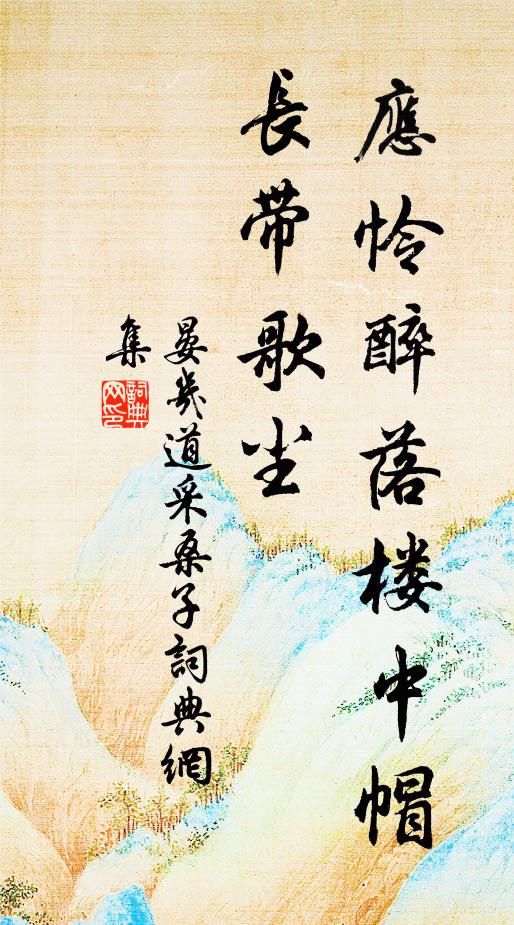 應怜醉落楼中帽
長带歌尘
晏幾道采桑子詞典網
集
詞典
网印